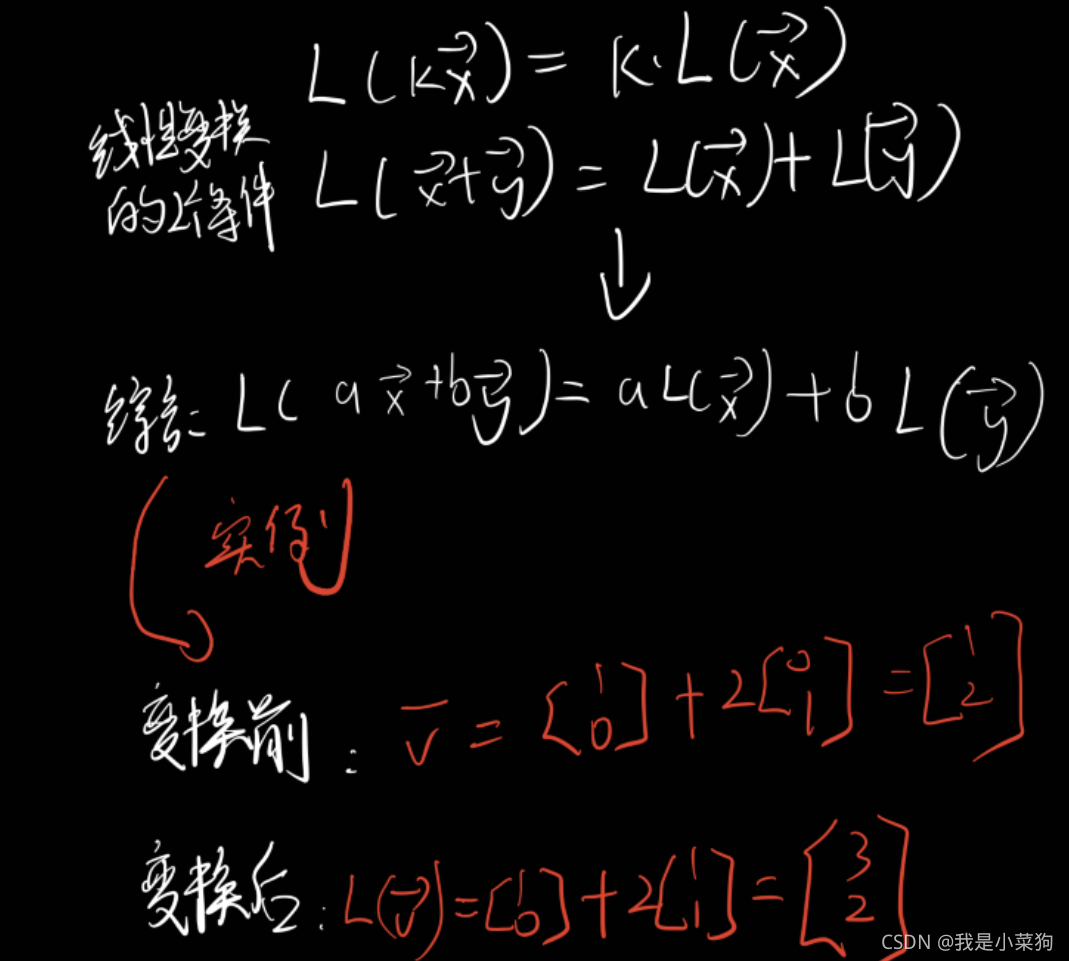 L(kx⃗) = k·L(x⃗)
线性变换
的2个条件 L(x⃗+y⃗) = L(x⃗) + L(y⃗)
↓
综合: L(ax⃗+by⃗) = aL(x⃗) + bL(y⃗)
实例
变换前: v̅ = [1 0] + 2[0 1] = [1 2]
变换后: L(v⃗) = [1 0] + 2[1 1] = [3 2]
CSDN @我是小菜狗